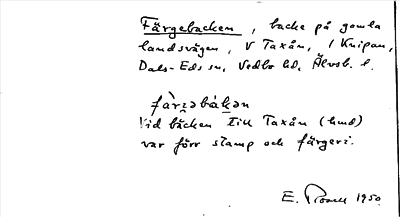 Färgebacken, backe på gamla
landsvägen, V Taxån, i Knipan,
Dals-Eds sn, Vedbo hd, Älvsb. l.
fàrɟəbákən
Vid bäcken till Taxån (hmd)
var förr stamp och färgeri.
E. 1950